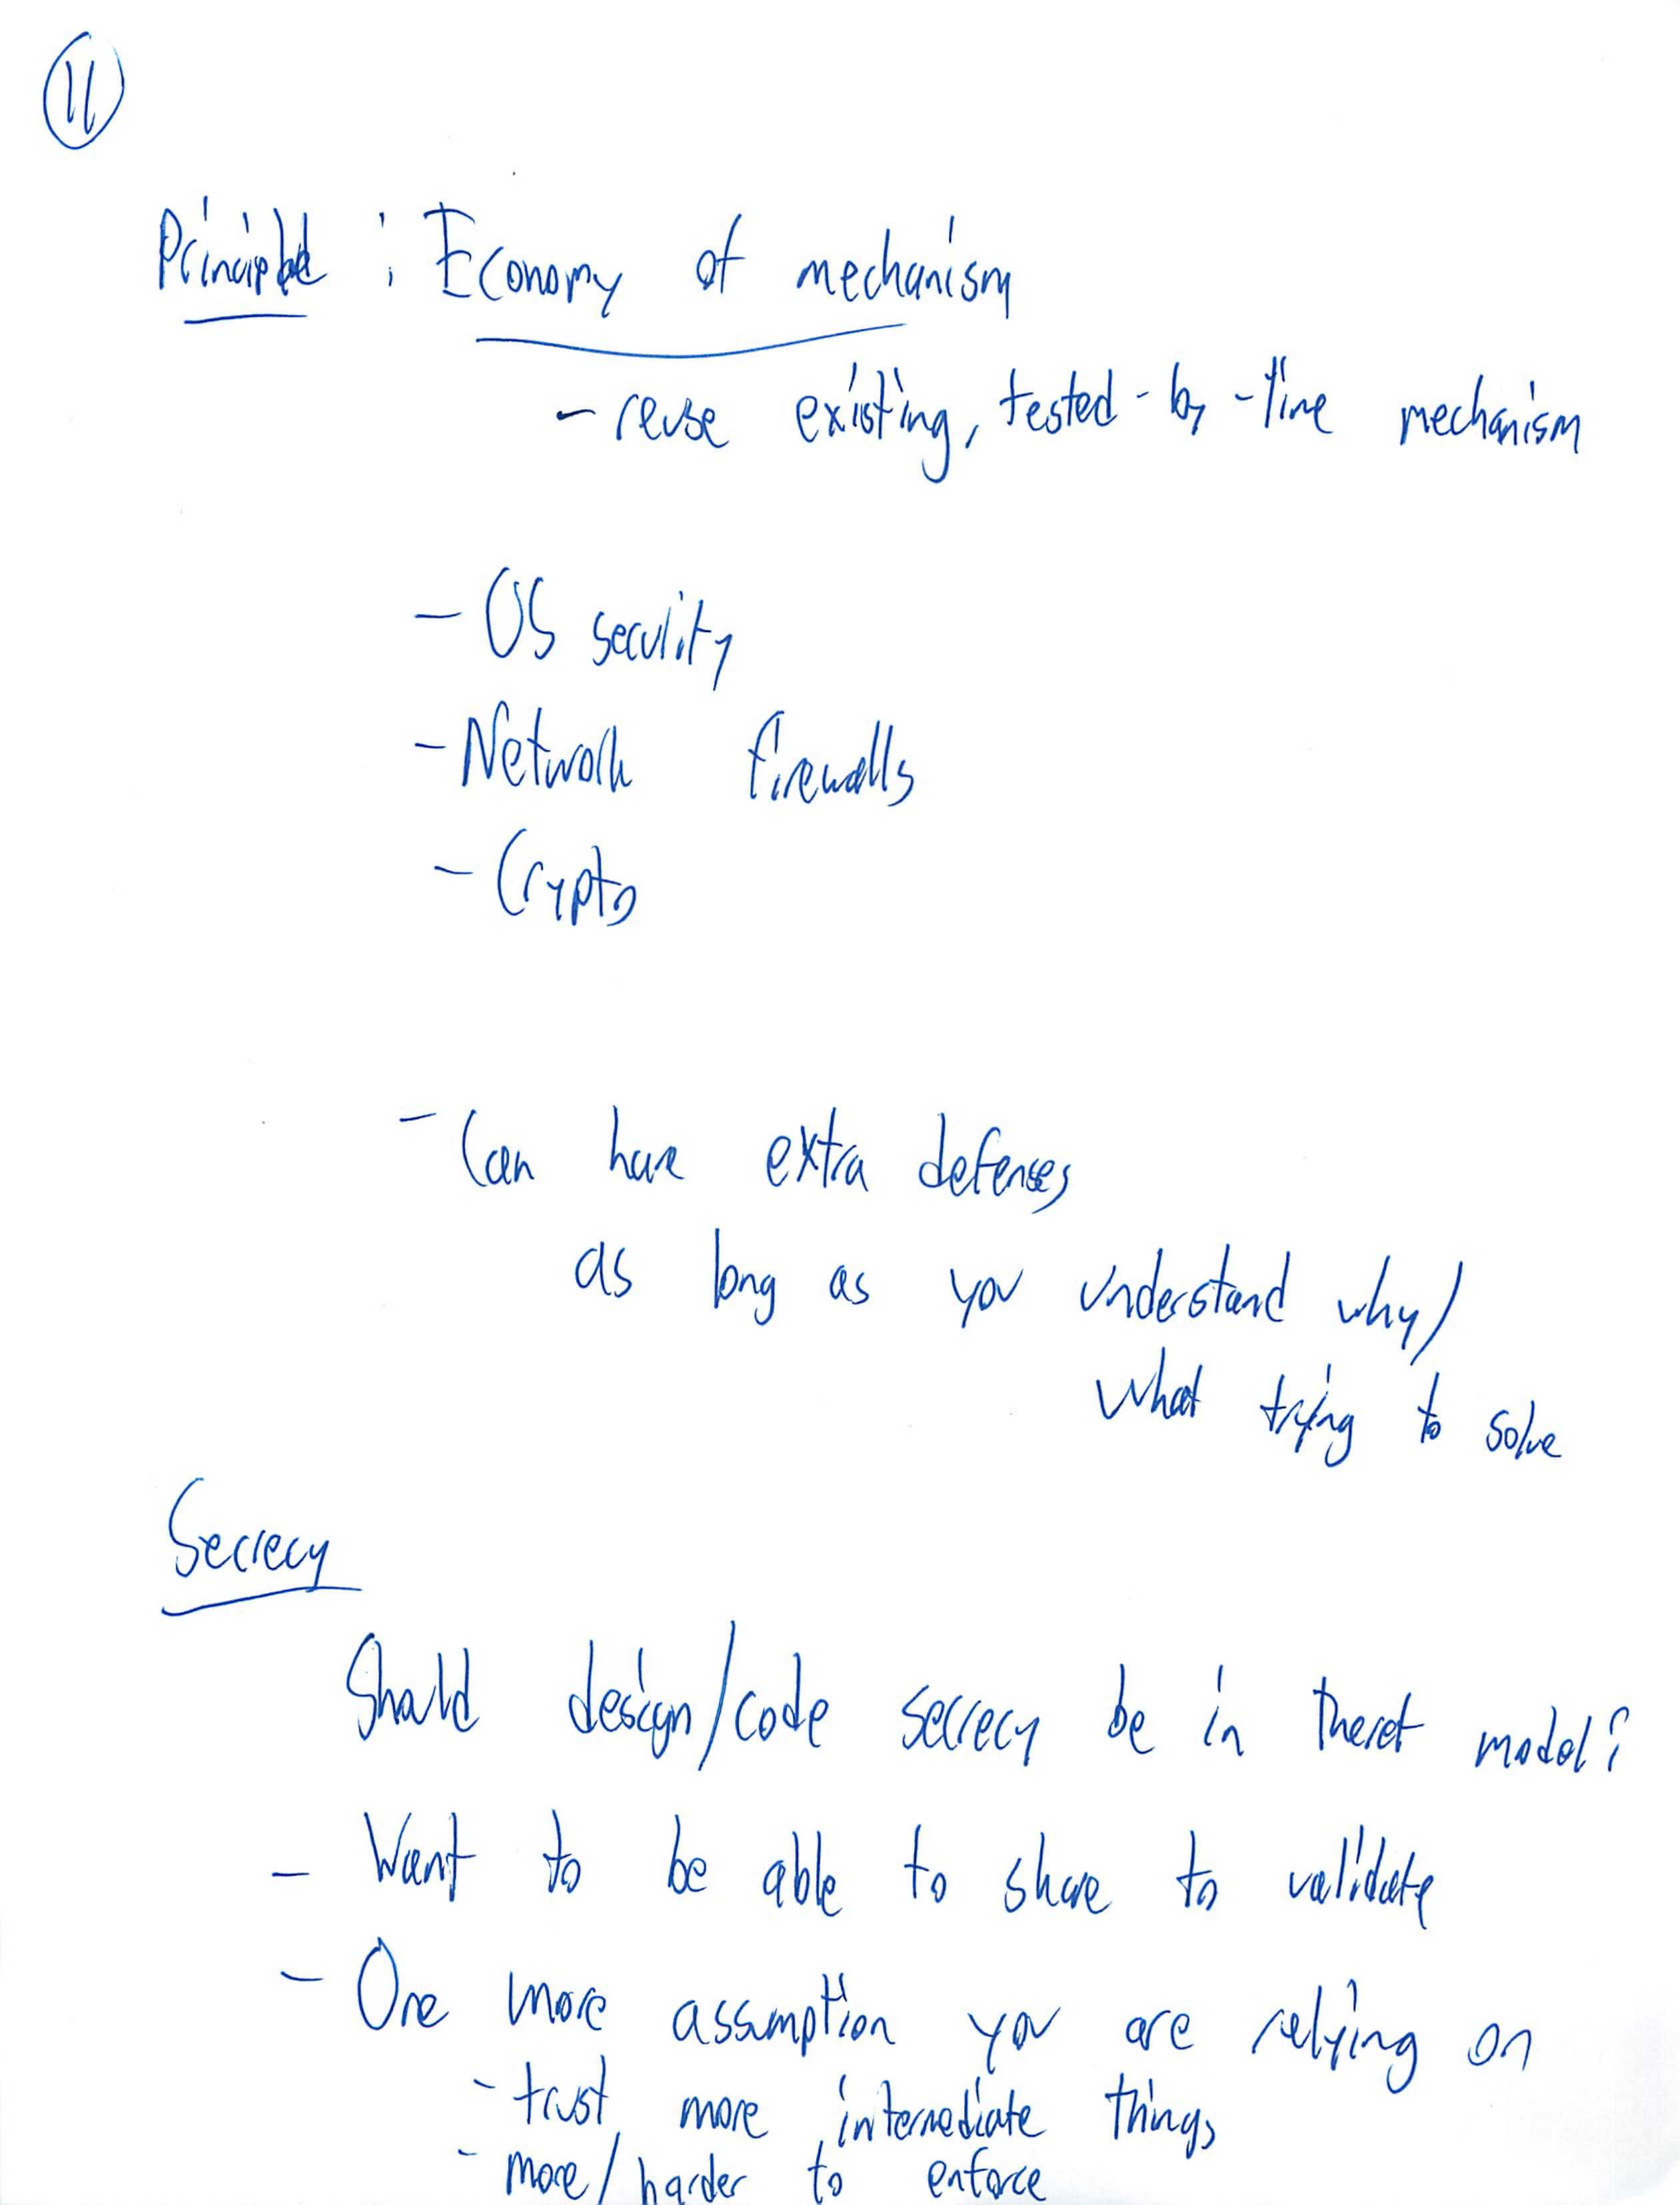 11
Principle : Economy of mechanism
- reuse existing, tested-by-time mechanism
- OS security
- Network firewalls
- Crypto
- Can have extra defenses
as long as you understand why/
what trying to solve
Secrecy
Should design/code secrecy be in thereat model?
- Want to be able to share to validate
- One more assumption you are relying on
- trust more intermediate things
- more/harder to enforce